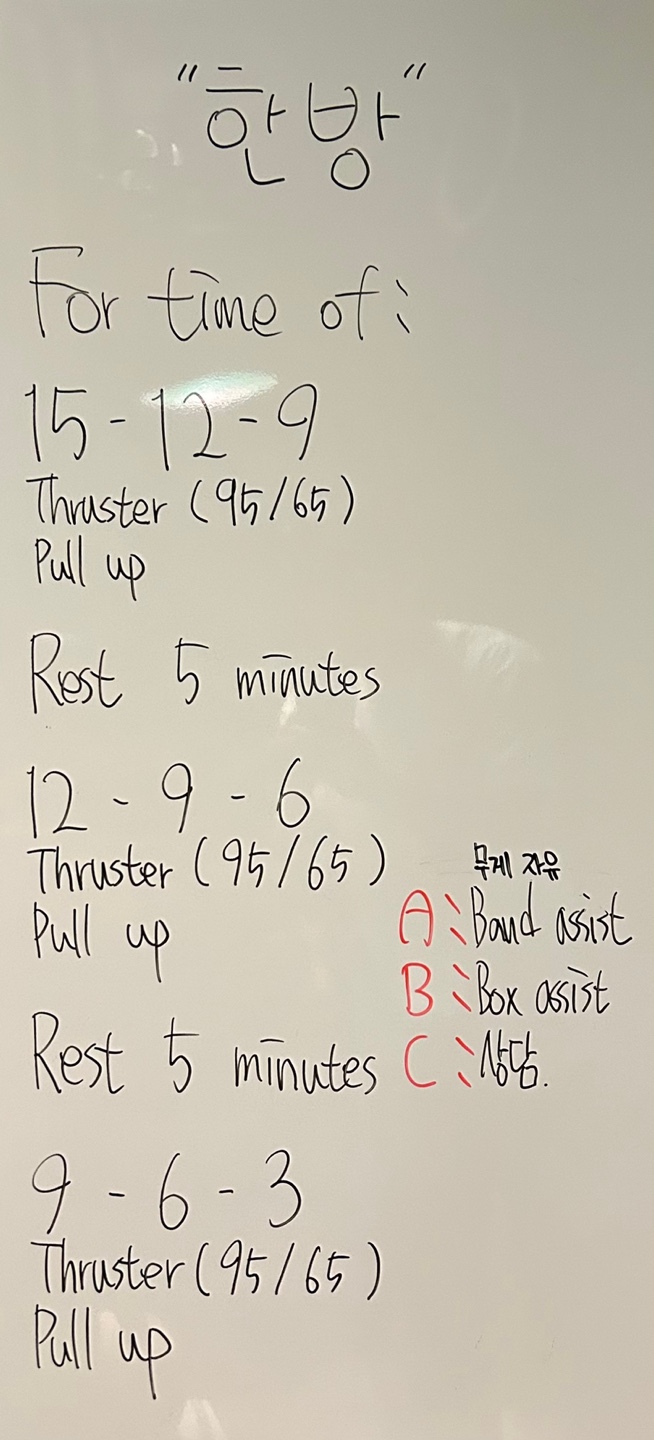 "한방"
For time of:
15 - 12 - 9
Thruster (95/65)
Pull up
Rest 5 minutes
12 - 9 - 6
Thruster (95/65)
Pull up
무게 자유
A: Band assist
B: Box assist
C: 상담.
Rest 5 minutes
9 - 6 - 3
Thruster (95/65)
Pull up